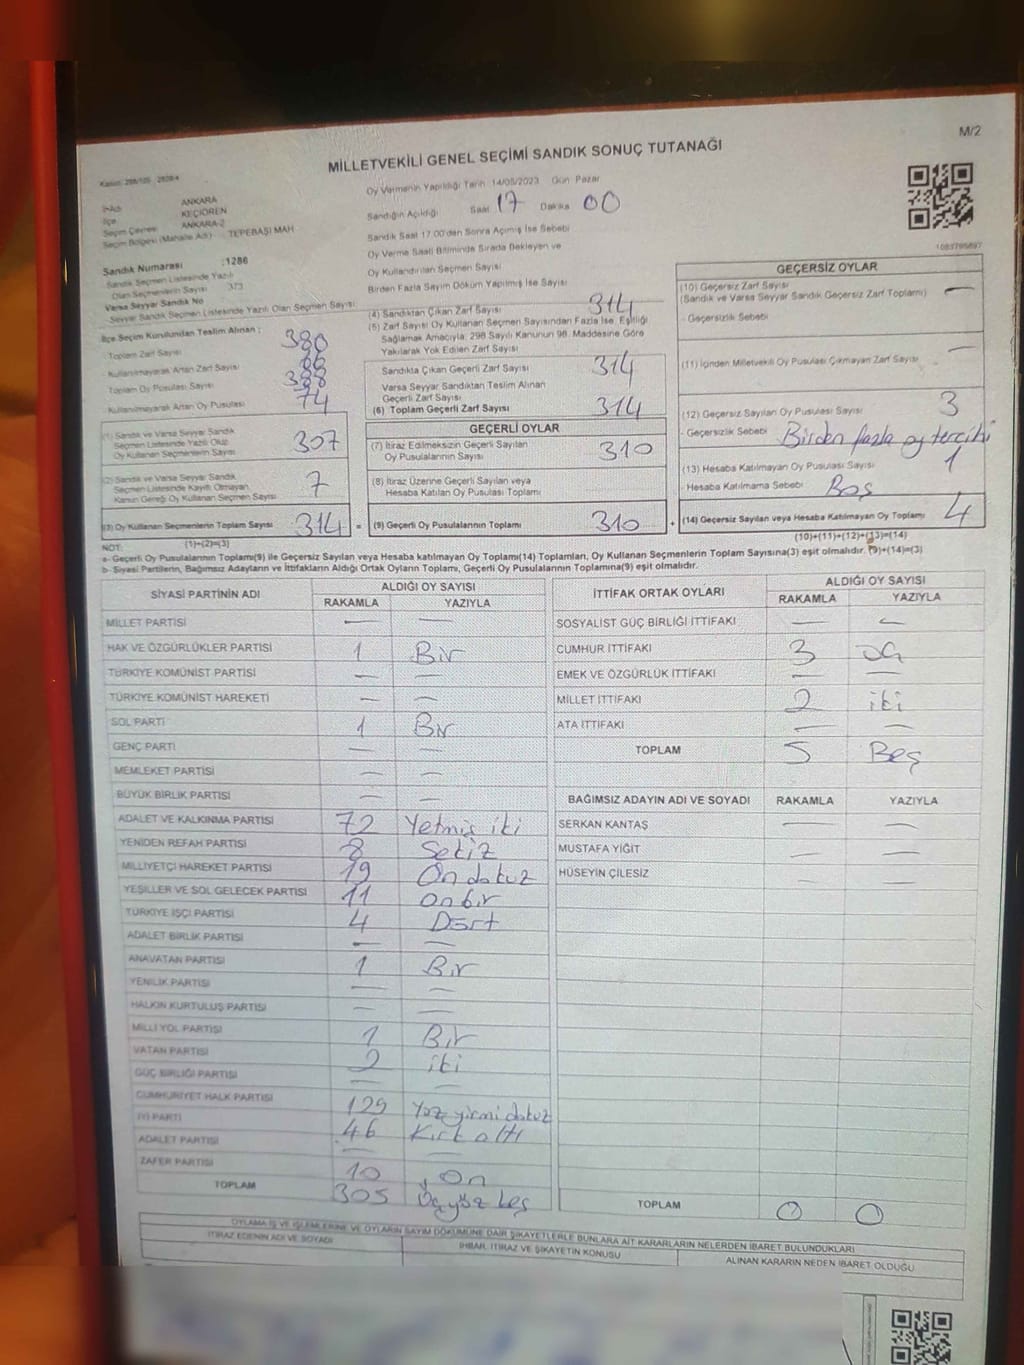 M/2
MİLLETVEKİLİ GENEL SEÇİMİ SANDIK SONUÇ TUTANAĞI
İli/Adı ANKARA
İlçe KEÇİÖREN
Seçim Çevresi ANKARA-2
Seçim Bölgesi (Mahalle Adı) : TEPEBAŞI MAH
Sandık Numarası :1286
Sandık Seçmen Listesinde Yazılı
Olan Seçmenlerin Sayısı 373
Varsa Seyyar Sandık No
- Seyyar Sandık Seçmen Listesinde Yazılı Olan Seçmen Sayısı:
İlçe Seçim Kurulundan Teslim Alınan :
- Toplam Zarf Sayısı 380
- Kullanılmayarak Artan Zarf Sayısı 66
Toplam Oy Pusulası Sayısı 388
- Kullanılmayarak Artan Oy Pusulası 74
(1) Sandık ve Varsa Seyyar Sandık
Seçmen Listesinde Yazılı Olup
Oy Kullanan Seçmenlerin Sayısı 307
(2) Sandık ve Varsa Seyyar Sandık
Seçmen Listesinde Kayıtlı Olmayan
Kanun Gereği Oy Kullanan Seçmen Sayısı 7
(3) Oy Kullanan Seçmenlerin Toplam Sayısı 314 =
(1)+(2)=(3)
Oy Vermenin Yapıldığı Tarih 14/05/2023 Gün Pazar
Sandığın Açıldığı Saat 17 Dakika 00
Sandık Saat 17:00'den Sonra Açılmış İse Sebebi
Oy Verme Saati Bitiminde Sırada Bekleyen ve
Oy Kullandırılan Seçmen Sayısı
Birden Fazla Sayım Döküm Yapılmış İse Sayısı
(4) Sandıktan Çıkan Zarf Sayısı 314
(5) Zarf Sayısı Oy Kullanan Seçmen Sayısından Fazla İse, Eşitliği
Sağlamak Amacıyla; 298 Sayılı Kanunun 98. Maddesine Göre
Yakılarak Yok Edilen Zarf Sayısı
Sandıkta Çıkan Geçerli Zarf Sayısı 314
Varsa Seyyar Sandıktan Teslim Alınan
Geçerli Zarf Sayısı
(6) Toplam Geçerli Zarf Sayısı 314
GEÇERLİ OYLAR
(7) İtiraz Edilmeksizin Geçerli Sayılan
Oy Pusulalarının Sayısı 310
(8) İtiraz Üzerine Geçerli Sayılan veya
Hesaba Katılan Oy Pusulası Toplamı
(9) Geçerli Oy Pusulalarının Toplamı 310 +
1083795897
GEÇERSİZ OYLAR
(10) Geçersiz Zarf Sayısı —
(Sandık ve Varsa Seyyar Sandık Geçersiz Zarf Toplamı)
- Geçersizlik Sebebi
(11) İçinden Milletvekili Oy Pusulası Çıkmayan Zarf Sayısı —
(12) Geçersiz Sayılan Oy Pusulası Sayısı 3
- Geçersizlik Sebebi Birden fazla oy tercihi
(13) Hesaba Katılmayan Oy Pusulası Sayısı 1
- Hesaba Katılmama Sebebi Boş
(14) Geçersiz Sayılan veya Hesaba Katılmayan Oy Toplamı 4
(10)+(11)+(12)+(13)=(14)
NOT:
a- Geçerli Oy Pusulalarının Toplamı(9) ile Geçersiz Sayılan veya Hesaba katılmayan Oy Toplamı(14) Toplamları, Oy Kullanan Seçmenlerin Toplam Sayısına(3) eşit olmalıdır. (9)+(14)=(3)
b- Siyasi Partilerin, Bağımsız Adayların ve İttifakların Aldığı Ortak Oyların Toplamı, Geçerli Oy Pusulalarının Toplamına(9) eşit olmalıdır.
SİYASİ PARTİNİN ADI ALDIĞI OY SAYISI
RAKAMLA YAZIYLA
MİLLET PARTİSİ — —
HAK VE ÖZGÜRLÜKLER PARTİSİ 1 Bir
TÜRKİYE KOMÜNİST PARTİSİ — —
TÜRKİYE KOMÜNİST HAREKETİ — —
SOL PARTİ 1 Bir
GENÇ PARTİ — —
MEMLEKET PARTİSİ — —
BÜYÜK BİRLİK PARTİSİ — —
ADALET VE KALKINMA PARTİSİ 72 Yetmiş iki
YENİDEN REFAH PARTİSİ 8 Sekiz
MİLLİYETÇİ HAREKET PARTİSİ 19 On dokuz
YEŞİLLER VE SOL GELECEK PARTİSİ 11 Onbir
TÜRKİYE İŞÇİ PARTİSİ 4 Dört
ADALET BİRLİK PARTİSİ — —
ANAVATAN PARTİSİ 1 Bir
YENİLİK PARTİSİ — —
HALKIN KURTULUŞ PARTİSİ — —
MİLLİ YOL PARTİSİ 1 Bir
VATAN PARTİSİ 2 iki
GÜÇ BİRLİĞİ PARTİSİ — —
CUMHURİYET HALK PARTİSİ 129 Yüz yirmi dokuz
İYİ PARTİ 46 Kırk altı
ADALET PARTİSİ — —
ZAFER PARTİSİ 10 On
TOPLAM 305 Üçyüz beş
İTTİFAK ORTAK OYLARI ALDIĞI OY SAYISI
RAKAMLA YAZIYLA
SOSYALİST GÜÇ BİRLİĞİ İTTİFAKI — —
CUMHUR İTTİFAKI 3 üç
EMEK VE ÖZGÜRLÜK İTTİFAKI — —
MİLLET İTTİFAKI 2 iki
ATA İTTİFAKI — —
TOPLAM 5 Beş
BAĞIMSIZ ADAYIN ADI VE SOYADI RAKAMLA YAZIYLA
SERKAN KANTAŞ — —
MUSTAFA YİĞİT — —
HÜSEYİN ÇİLESİZ — —
TOPLAM 0 0
OYLAMA İŞ VE İŞLEMLERİNE VE OYLARIN SAYIM DÖKÜMÜNE DAİR ŞİKAYETLERLE BUNLARA AİT KARARLARIN NELERDEN İBARET BULUNDUKLARI
İTİRAZ EDENİN ADI VE SOYADI İHBAR, İTİRAZ VE ŞİKAYETİN KONUSU ALINAN KARARIN NEDEN İBARET OLDUĞU